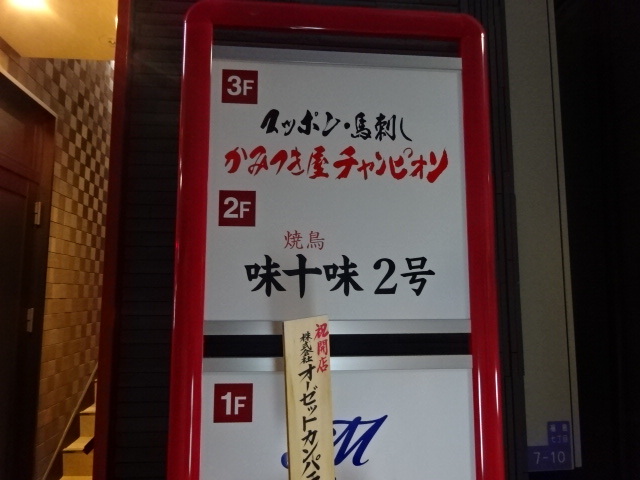 3F
スッポン・馬刺し
かみつき屋チャンピオン
2F
焼鳥
味十味2号
祝開店
株式会社
オーゼットカンパニ
1F
M
7-10